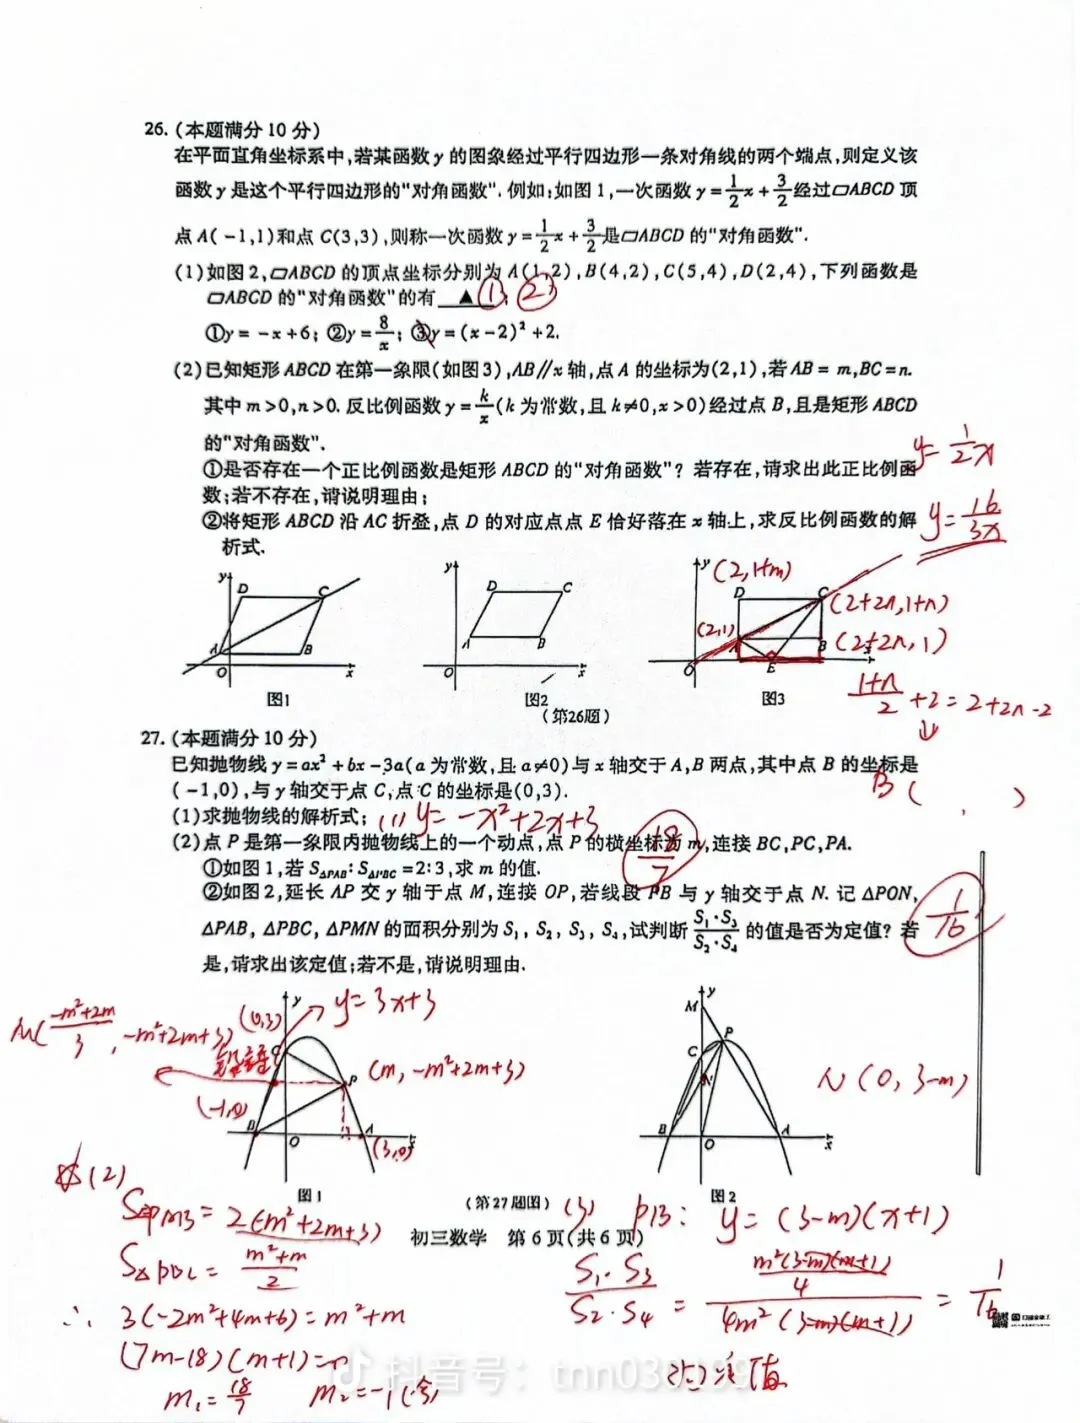 26.(本题满分10分)
在平面直角坐标系中,若某函数y的图象经过平行四边形一条对角线的两个端点,则定义该
函数y是这个平行四边形的"对角函数". 例如:如图1,一次函数y=1/2x+3/2经过▱ABCD顶
点A(-1,1)和点C(3,3),则称一次函数y=1/2x+3/2是▱ABCD的"对角函数".
(1)如图2,▱ABCD的顶点坐标分别为A(1,2),B(4,2),C(5,4),D(2,4),下列函数是
▱ABCD的"对角函数"的有 ▲ ① ② ;
①y=-x+6; ②y=8/x; ③y=(x-2)²+2.
(2)已知矩形ABCD在第一象限(如图3),AB∥x轴,点A的坐标为(2,1),若AB=m,BC=n.
其中m>0,n>0. 反比例函数y=k/x(k为常数,且k≠0,x>0)经过点B,且是矩形ABCD
的"对角函数".
y=1/2x
①是否存在一个正比例函数是矩形ABCD的"对角函数"? 若存在,请求出此正比例函
数;若不存在,请说明理由;
y=16/3x
②将矩形ABCD沿AC折叠,点D的对应点点E恰好落在x轴上,求反比例函数的解
析式.
y D C A B O x
图1
y D C A B O x
图2
y (2,1+m) D C (2+2n,1+n)
(2,1) A B (2+2n,1)
O E x
图3
(第26题)
1+n/2+2=2+2n-2
27.(本题满分10分)
已知抛物线y=ax²+bx-3a(a为常数,且a≠0)与x轴交于A,B两点,其中点B的坐标是
B( , )
(-1,0),与y轴交于点C,点C的坐标是(0,3).
(1)求抛物线的解析式; (1) y=-x²+2x+3
(2)点P是第一象限内抛物线上的一个动点,点P的横坐标为m,连接BC,PC,PA.
18/7
①如图1,若S△PAB:S△PBC=2:3,求m的值.
②如图2,延长AP交y轴于点M,连接OP,若线段PB与y轴交于点N. 记△PON,
△PAB, △PBC, △PMN的面积分别为S₁, S₂, S₃, S₄,试判断S₁·S₃/S₂·S₄的值是否为定值? 若
1/16
是,请求出该定值;若不是,请说明理由.
M(-m²+2m/3, -m²+2m+3) (0,3) y y=3x+3
C P (m, -m²+2m+3)
(-1,0) B O A x (3,0)
图1
y M P C N B O A x
N(0, 3-m)
图2
(第27题图)
初三数学 第6页(共6页)
(2)
S△PMB=2(-m²+2m+3)
S△PBC=m²+m/2
∴ 3(-2m²+4m+6)=m²+m
(7m-18)(m+1)=0
m₁=18/7 m₂=-1(舍)
(3) PB: y=(3-m)(x+1)
S₁·S₃/S₂·S₄=m²(3-m)(m+1)/4/4m²(3-m)(m+1)=1/16
抖音号: tnn030199